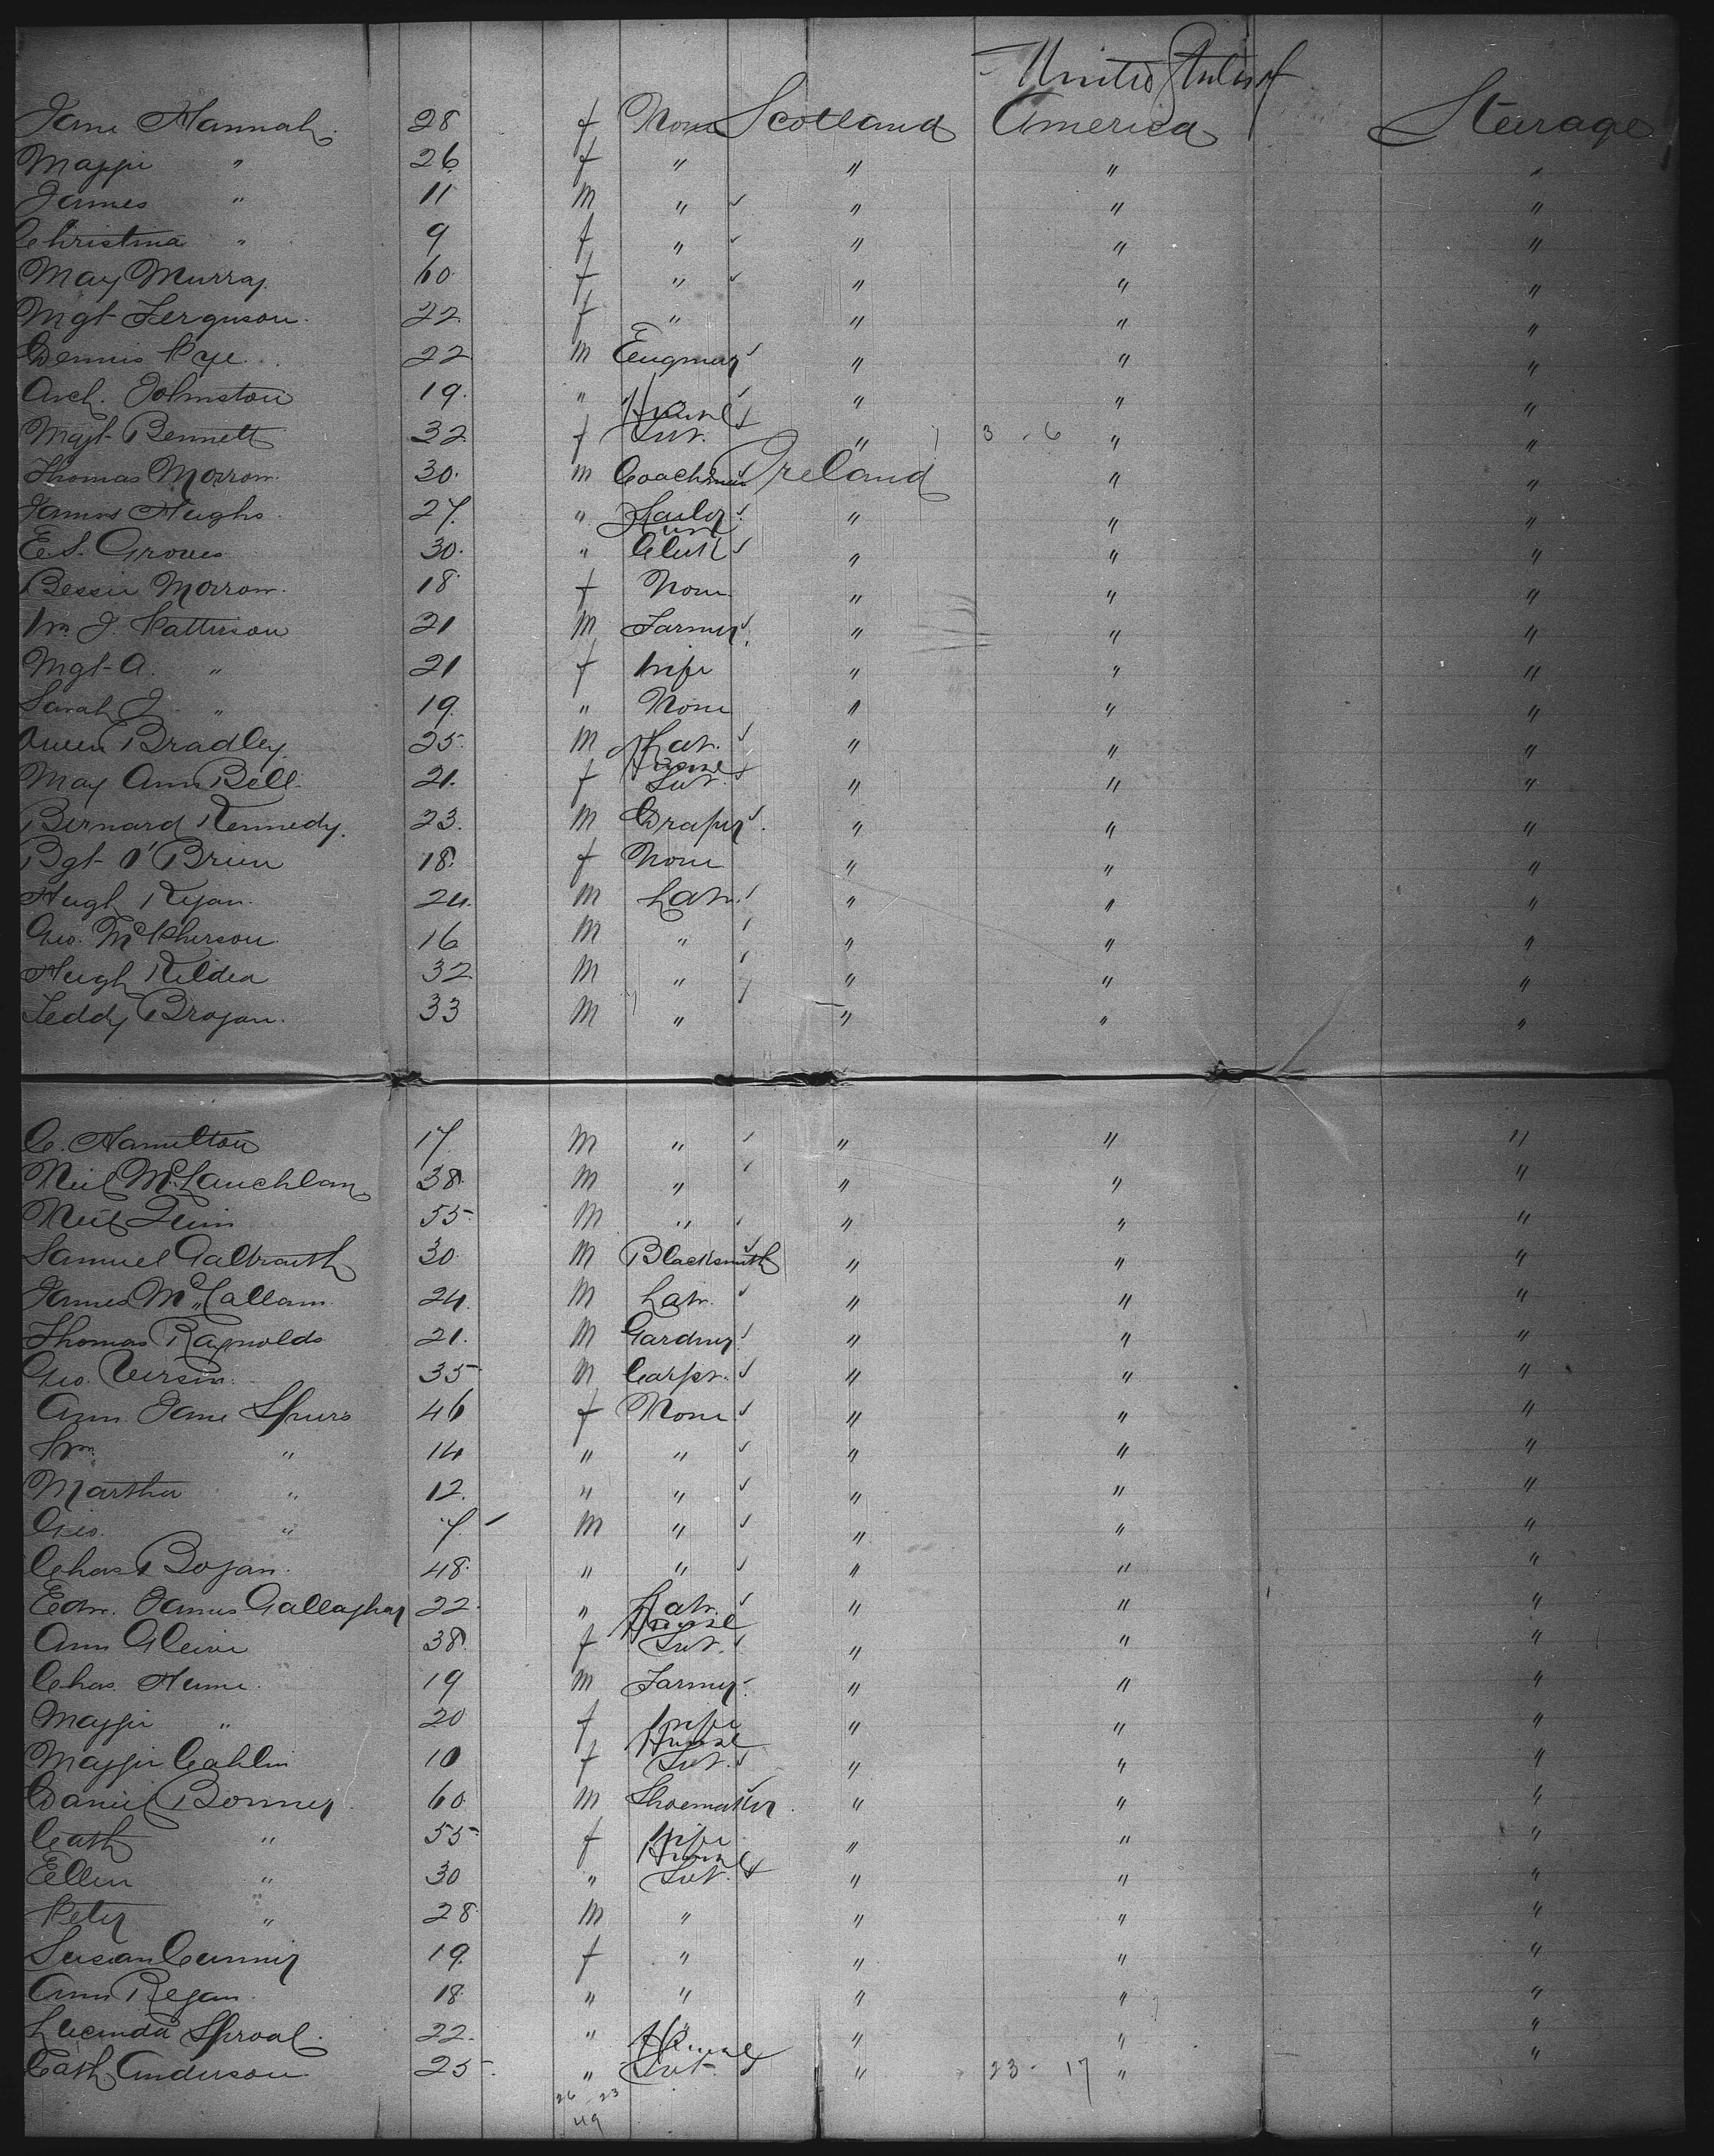 United States of
Jane Hannah. 28 f None Scotland America Steerage
Maggie " 26 f " " " "
James " 11 m " " " "
Christina " 9 f " " " "
May Murray. 60 f " " " "
Mgt Ferguson. 22 f " " " "
Dennis Pye. 22 m " " "
Arch. Johnston 19. " " " " "
House
Mgt Bennett 32 f Svt. " 3 - 6 " "
Thomas Morrow. 30. m Coachman Ireland " "
James Hughs. 27. " Sailor " " "
E.S. Groves 30. " Clerk " " "
Bessie Morrow. 18 f None " " "
Wm J. Patterson 21 m Farmer " " "
Mgt A. " 21 f Wife " " "
Sarah J " 19. " None " " "
Owen Bradley. 25. m Labr. " " "
House
May Ann Bell. 21. f Svt. " " "
Bernard Kennedy. 23. m Draper " " "
Bgt O'Brien 18. f None " " "
Hugh Ryan. 24. m Labr. " " "
Geo. McPherson. 16 m " " " "
Hugh Kildea 32. m " " " "
Teddy Brogan. 33 m " " " "
C. Hamilton 17. m " " " "
Neil McLauchlan 38. m " " " "
Neil Quin 55. m " " " "
Samuel Galbraith 30. m Blacksmith " " "
James McCallam. 24. m Labr. " " "
Thomas Raynolds 21. m Gardner " " "
Geo. 35 m Carpr. " " "
Ann Jane Spurs 46 f None " " "
Wm. " 14 " " " " "
Martha " 12. " " " " "
Geo. " 7 m " " " "
Chas Bogan. 48. " " " " "
Edw. James Gallagher 22. " Labr. " " "
House
Ann 38. f Svt. " " "
Chas. Hume. 19 m Farmer " " "
Maggie " 20 f Wife " " "
House
Maggie Cahlin 10 f Svt. " " "
Daniel Bonner. 60. m Shoemaker. " " "
Cath " 55 f Wife " " "
House
Ellen " 30 " Svt. " " "
Peter " 28 m " " " "
Susan Cunnier 19. f " " " "
Ann Regan. 18. " " " " "
Lucinda Sproal. 22. " " " " "
House
Cath Anderson 25. " Svt. " 23 - 17 " "
26 23
49